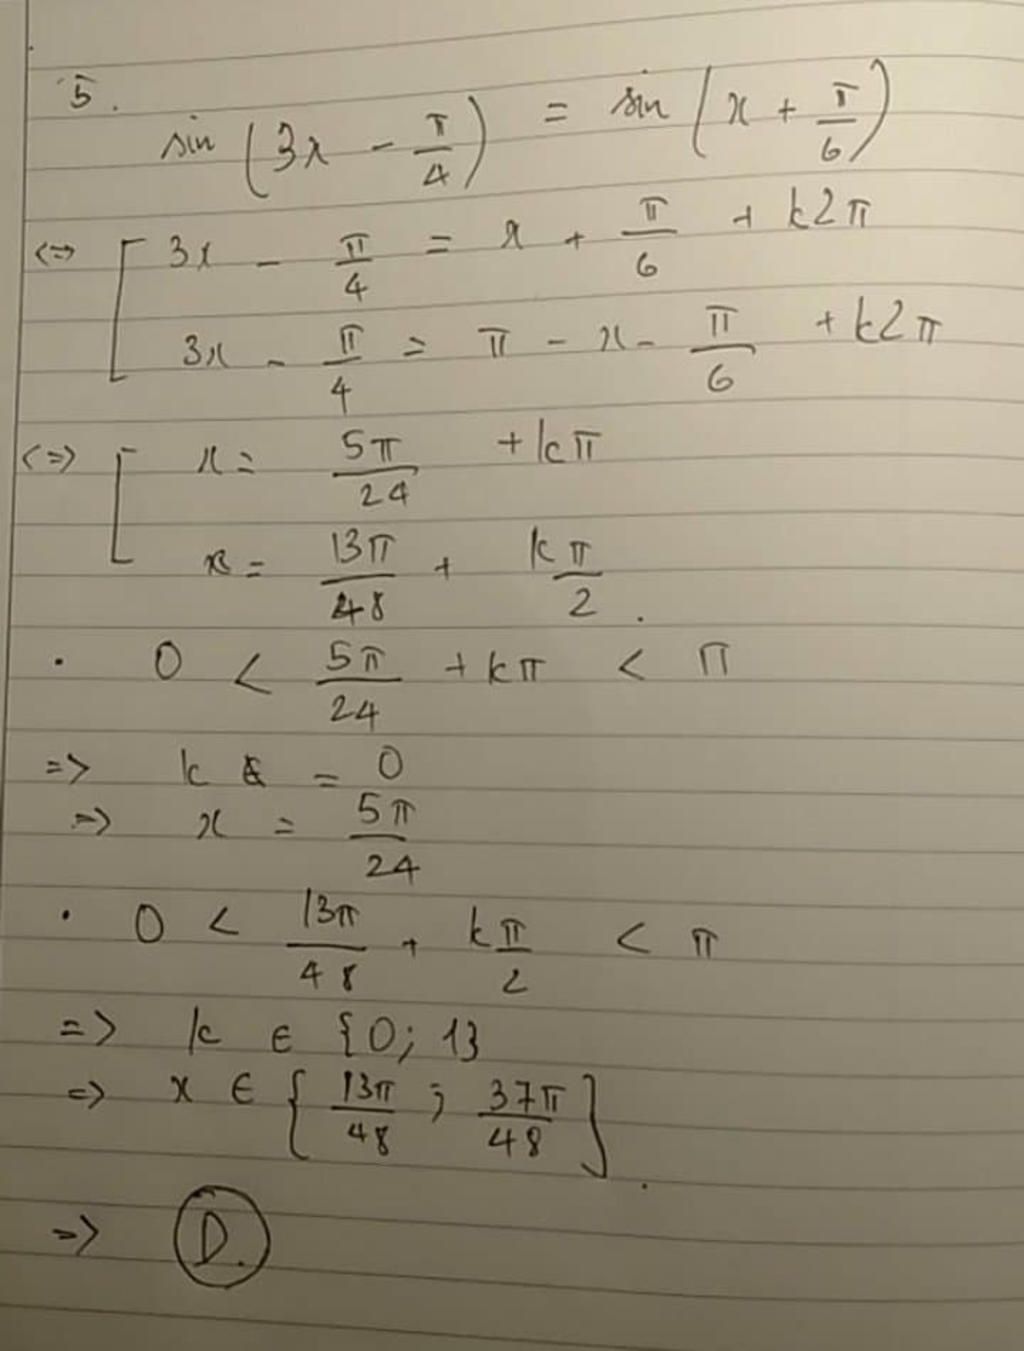 5.
sin (3x - π/4) = sin (x + π/6)
<=> [ 3x - π/4 = x + π/6 + k2π
3x - π/4 = π - x - π/6 + k2π
<=> [ x = 5π/24 + kπ
x = 13π/48 + kπ/2 .
· 0 < 5π/24 + kπ < π
=> k = 0
=> x = 5π/24
· 0 < 13π/48 + kπ/2 < π
=> k ∈ {0; 1}
=> x ∈ { 13π/48 ; 37π/48 } .
=> D.